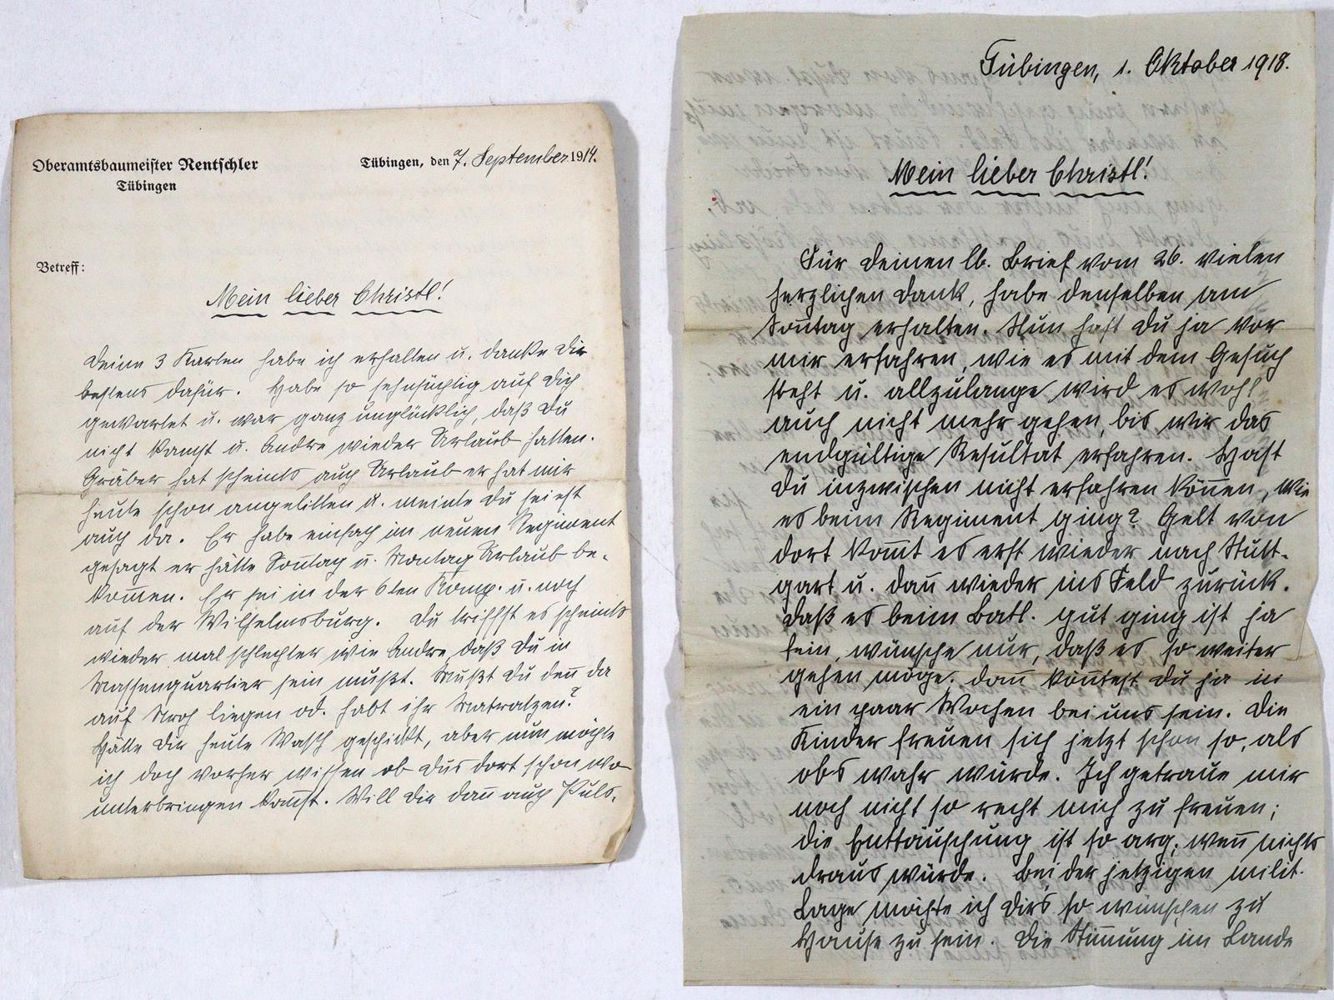 Oberamtsbaumeister Rentschler
Tübingen
Tübingen, den 7. September 1914.
Betreff:
Mein lieber Christl!
Deine 3 Karten habe ich erhalten u. danke Dir
bestens dafür. Habe so sehnsüchtig auf Dich
gewartet u. war ganz unglücklich, daß Du
nicht kamst u. Andre wieder Urlaub hatten.
Gräber hat scheints auch Urlaub er hat mir
heute schon angelitten u. meinte Du seiest
auch da. Er habe einfach im neuen Regiment
gesagt er hätte Soñtag u. Montag Urlaub be-
kom̃en. Er sei in der 6ten Komp. u. noch
auf der Wilhelmsburg. Du triffst es scheints
wieder mal schlechter wie Andre daß Du in
Massenquartier sein mußt. Mußt Du deñ da
auf Stroh liegen od. habt ihr Matratzen?
Hätte Dir heute Wasch geschickt, aber nun möchte
ich doch vorher wissen ob Dus dort schon wo
unterbringen kañst. Will Dir dañ auch Puls-
Tübingen, 1. Oktober 1918.
Mein lieber Christl!
Für Deinen lb. Brief vom 26. vielen
herzlichen Dank, habe denselben am
Soñtag erhalten. Nun hast Du ja vor
mir erfahren, wie es mit dem Gesuch
steht u. allzulange wird es wohl
auch nicht mehr gehen, bis wir das
endgültige Resultat erfahren. Hast
Du inzwischen nicht erfahren köñen, wie
es beim Regiment ging? Gelt von
dort kom̃t es erst wieder nach Stutt-
gart u. dañ wieder ins Feld zurück.
Daß es beim Batl. gut ging ist ja
fein, wünsche nur, daß es so weiter
gehen möge. Dañ köñtest Du ja in
ein paar Wochen bei uns sein. Die
Kinder freuen sich jetzt schon so, als
obs wahr würde. Ich getraue mir
noch nicht so recht mich zu freuen;
die Enttäuschung ist so arg, weñ nichts
draus würde. Bei der jetzigen milit.
Lage möchte ich Dirs so wünschen zu
Hause zu sein. Die Stim̃ung im Lande